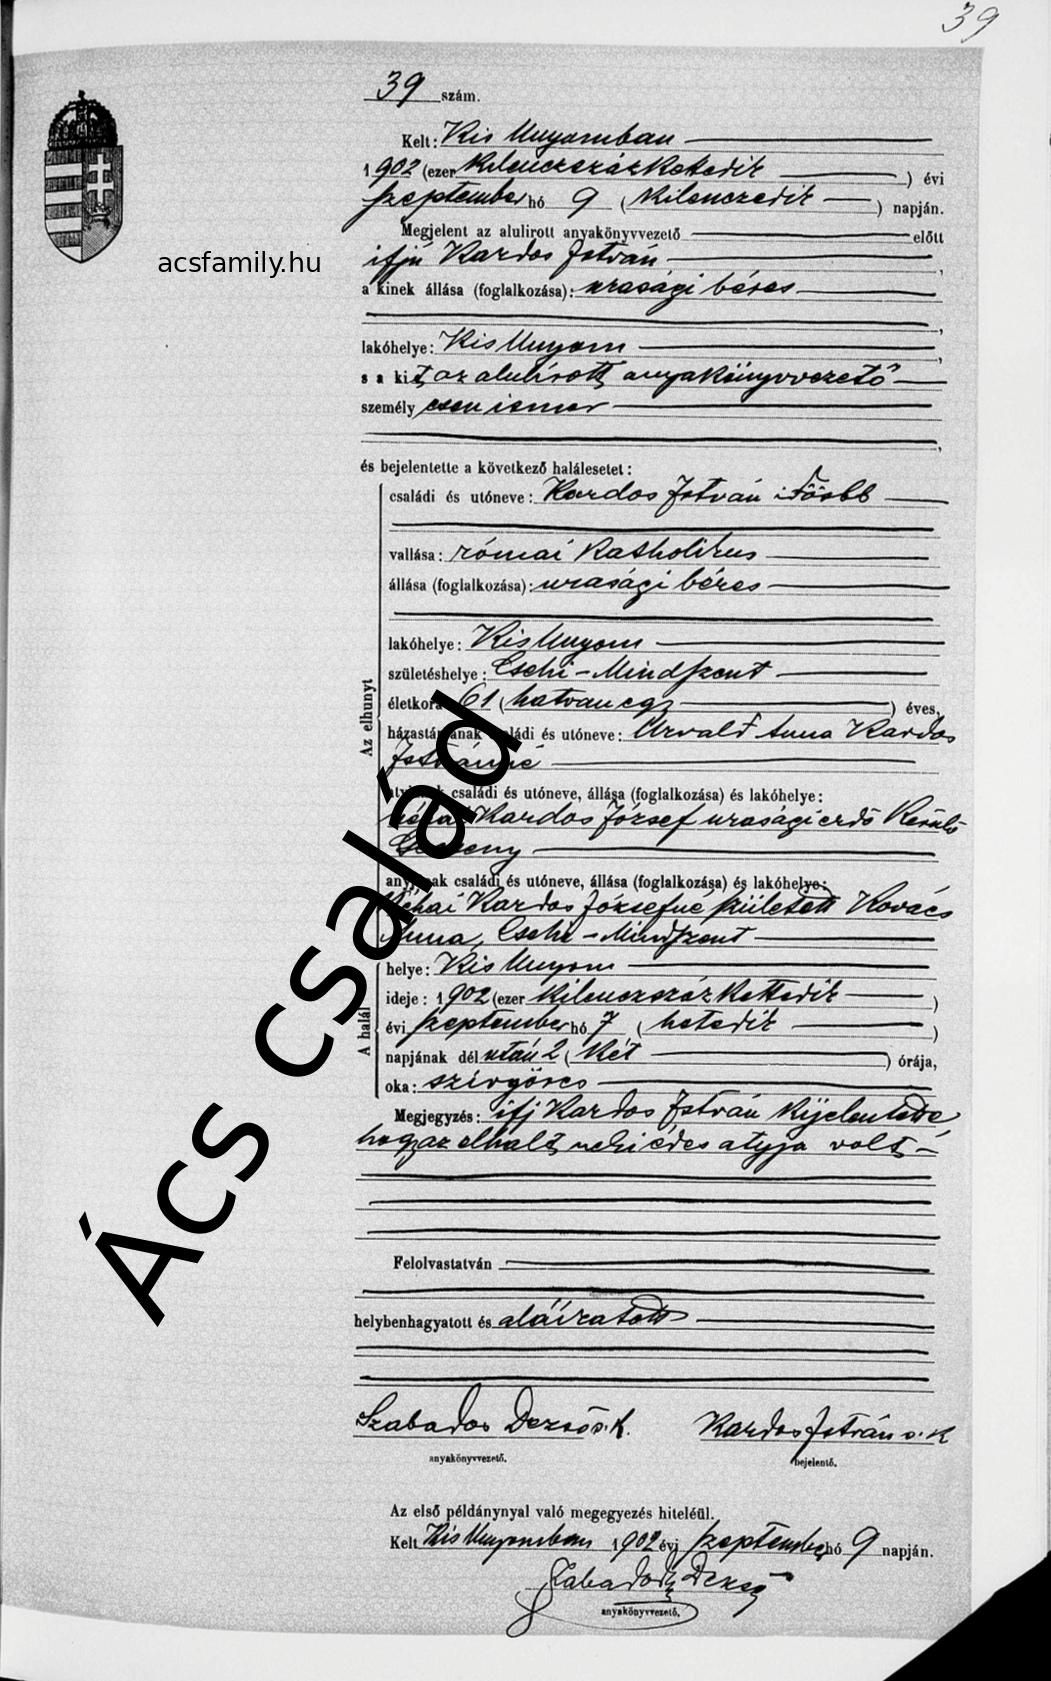 39
39 szám.
Kelt: Kis Unyomban
1902 (ezer kilenczszázkettedik ) évi
szeptember hó 9 (kilenczedik ) napján.
acsfamily.hu
Megjelent az alulirott anyakönyvvezető előtt
ifjú Kardos István ,
a kinek állása (foglalkozása): urasági béres
,
lakóhelye: Kis Unyom ,
s a kit, az alulírott anyakönyvvezető
személyesen ismer
,
és bejelentette a következő halálesetet:
családi és utóneve: Kardos István idősbb
vallása: római katholikus
állása (foglalkozása): urasági béres
lakóhelye: Kis Unyom
születéshelye: Csehi-Mindszent
életkora 61 (hatvanegy ) éves,
Az elhunyt
házastársának családi és utóneve: Anna Kardos
Istvánné
atyjának családi és utóneve, állása (foglalkozása) és lakóhelye:
néhai Kardos József urasági erdő kerülő
anyjának családi és utóneve, állása (foglalkozása) és lakóhelye:
néhai Kardos Józsefné született Kovács
Anna, Csehi-Mindszent
A halál
helye: Kis Unyom
ideje: 1902 (ezer kilenczszázkettedik )
évi szeptember hó 7 (hetedik )
napjának dél után 2 (két ) órája,
oka: szívgörcs
Megjegyzés: ifj Kardos István kijelentette,
hogy az elhalt, neki édes atyja volt,
Felolvastatván
helybenhagyatott és aláíratott
Szabados Dezső s.k. Kardos István s.k
anyakönyvvezető. bejelentő.
Az első példánynyal való megegyezés hiteléül.
Kelt Kis Unyomban 1902 évi szeptember hó 9 napján.
Szabados Dezső
anyakönyvvezető.
Ács család